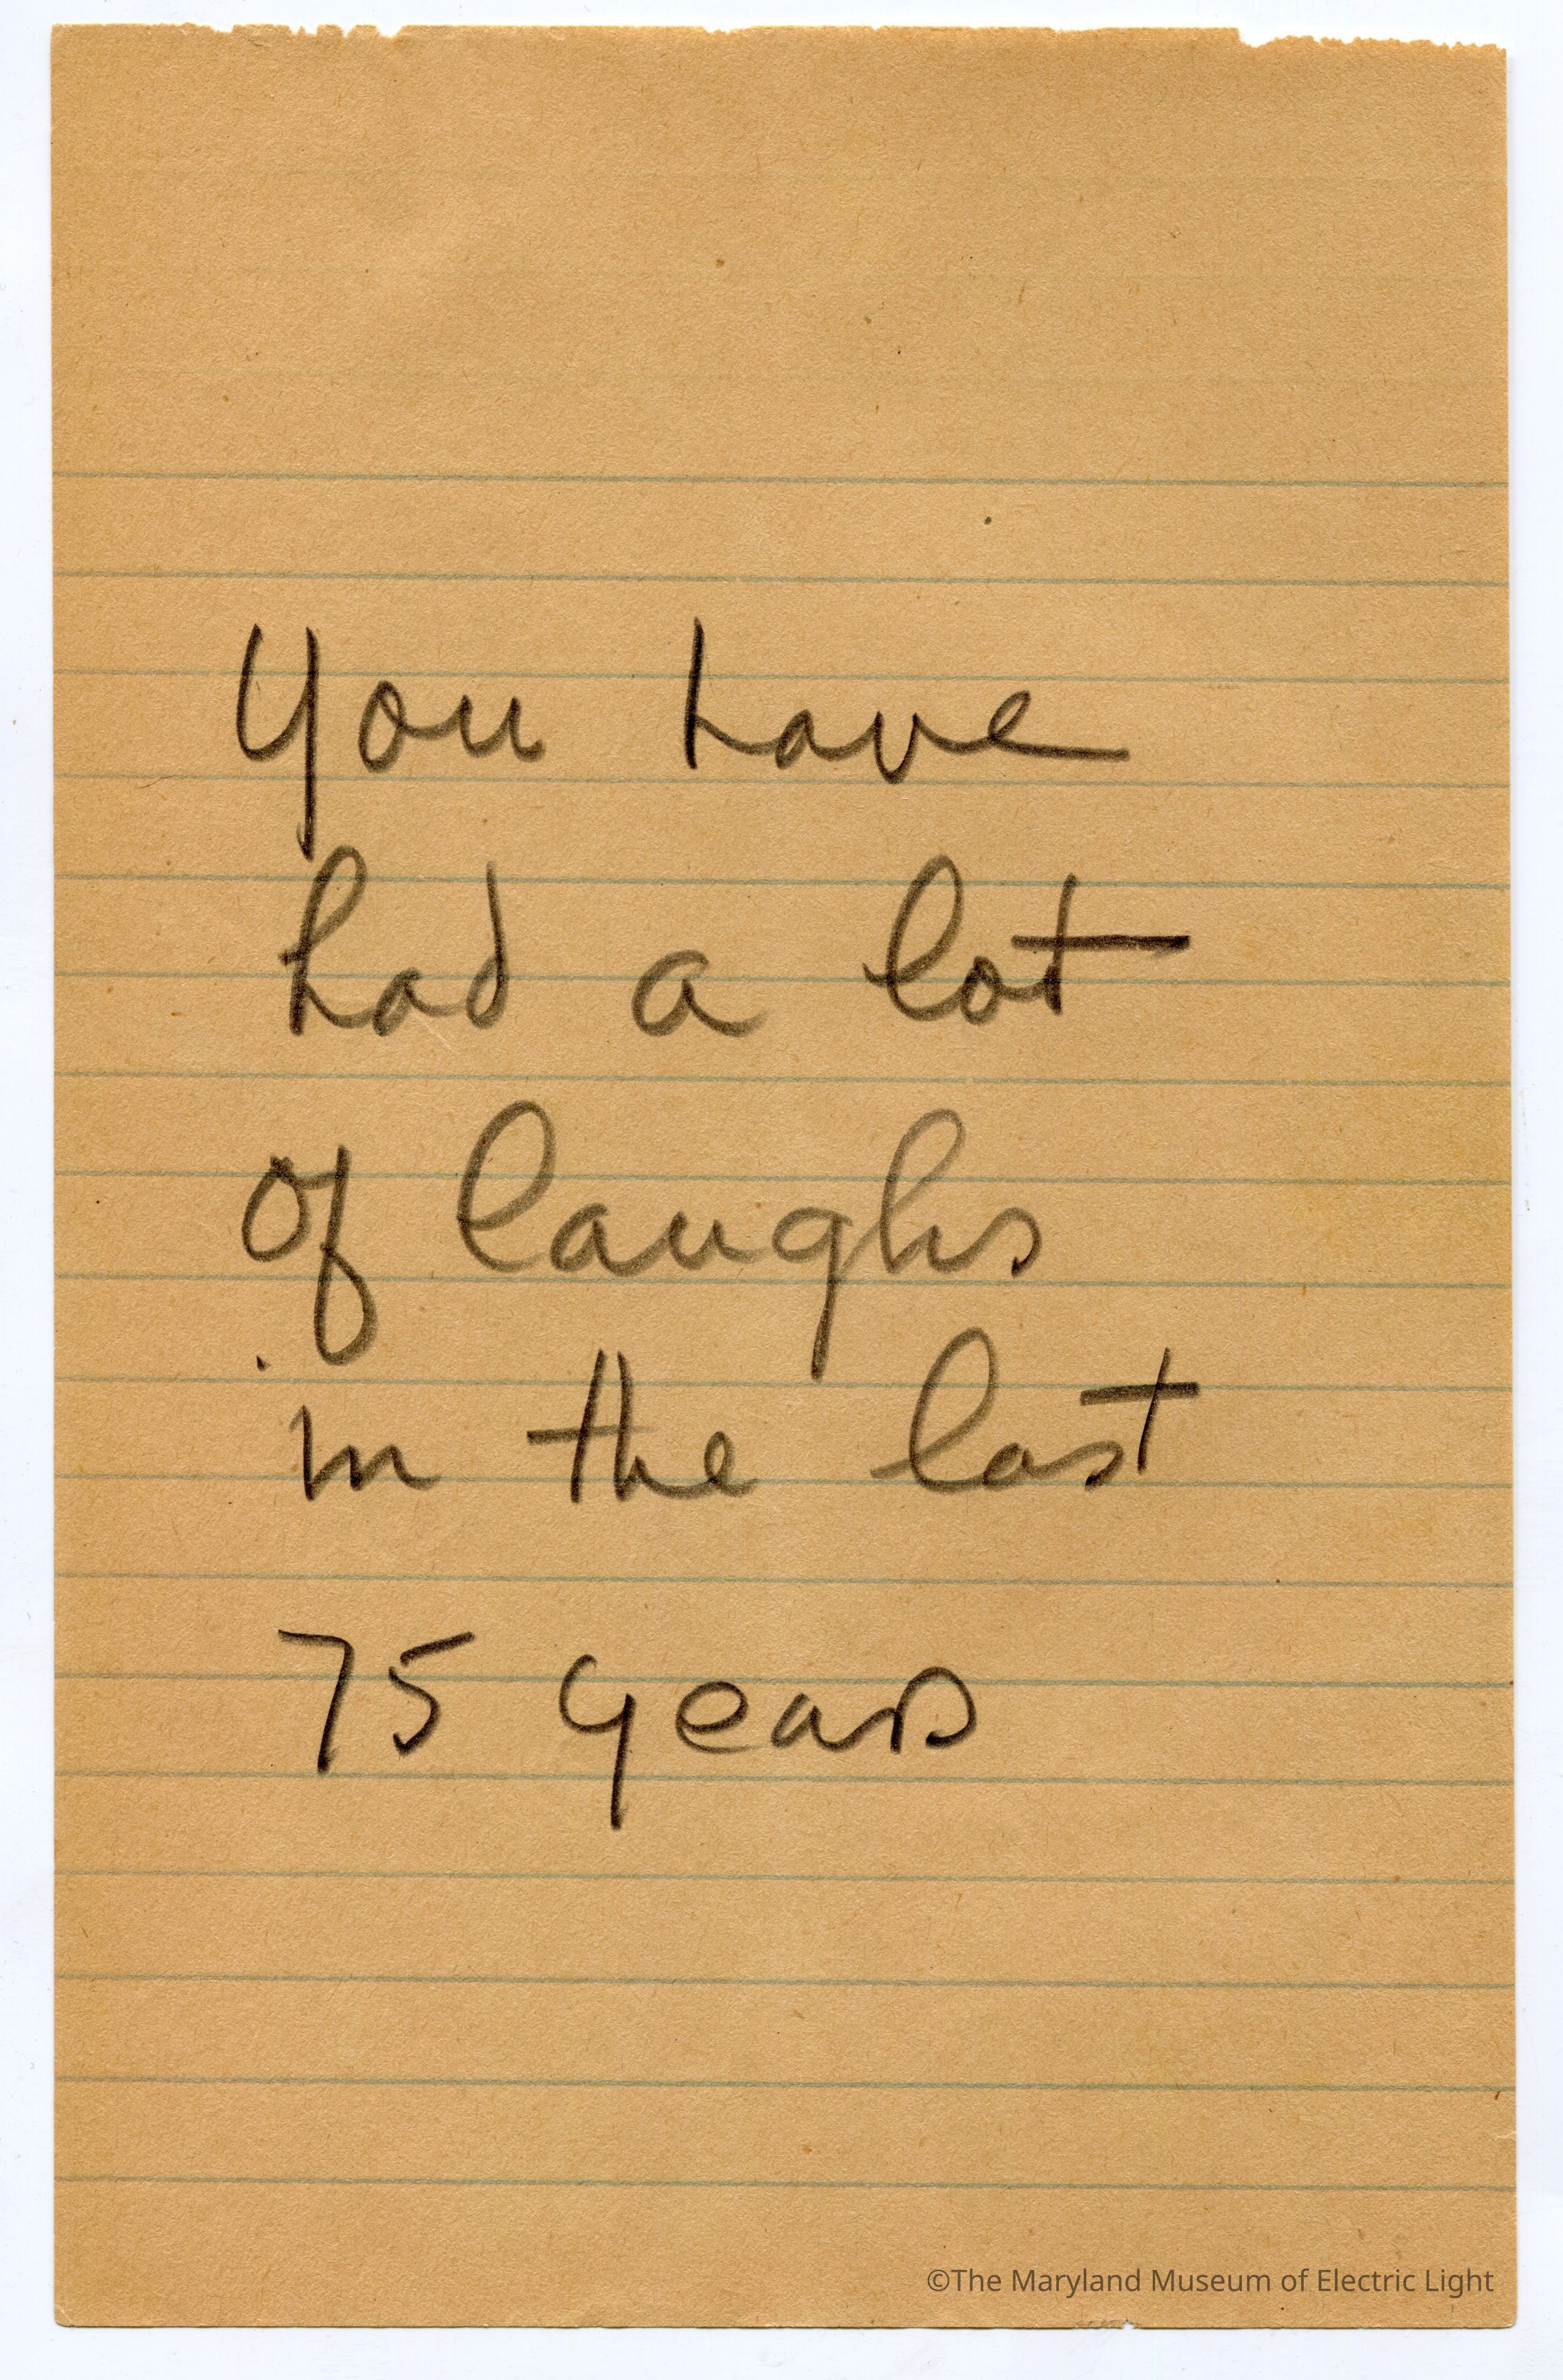 You have
had a lot
of laughs
in the last
75 years
©The Maryland Museum of Electric Light